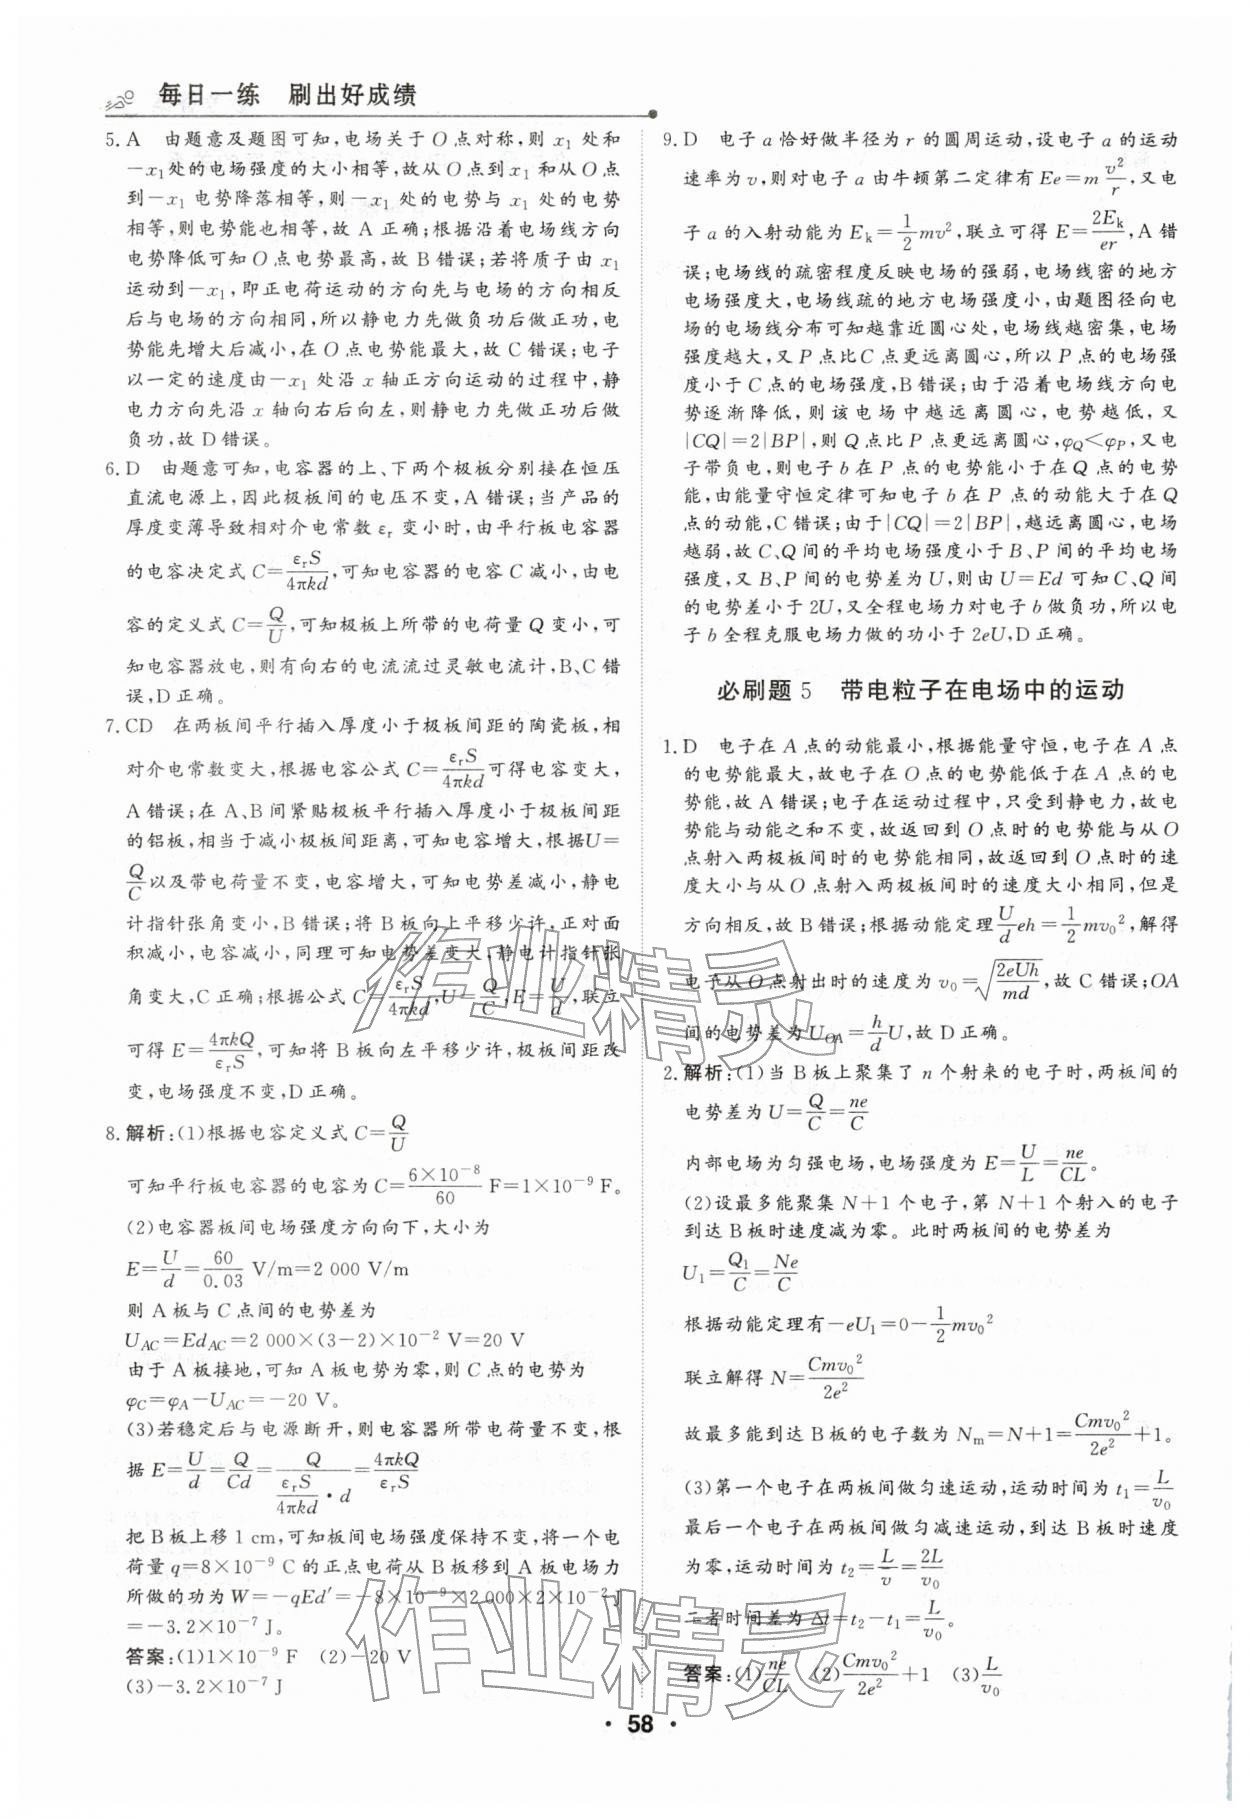 每日一练 刷出好成绩
5. A 由题意及题图可知,电场关于 O 点对称,则 x₁ 处和
−x₁处的电场强度的大小相等,故从 O 点到 x₁ 和从 O 点
到−x₁ 电势降落相等,则−x₁ 处的电势与 x₁ 处的电势
相等,则电势能也相等,故 A 正确;根据沿着电场线方向
电势降低可知 O 点电势最高,故 B 错误;若将质子由 x₁
运动到−x₁,即正电荷运动的方向先与电场的方向相反
后与电场的方向相同,所以静电力先做负功后做正功,电
势能先增大后减小,在 O 点电势能最大,故 C 错误;电子
以一定的速度由−x₁ 处沿 x 轴正方向运动的过程中,静
电力方向先沿 x 轴向右后向左,则静电力先做正功后做
负功,故 D 错误。
6. D 由题意可知,电容器的上、下两个极板分别接在恒压
直流电源上,因此极板间的电压不变,A 错误;当产品的
厚度变薄导致相对介电常数 εᵣ 变小时,由平行板电容器
的电容决定式 C=εᵣS/4πkd,可知电容器的电容 C 减小,由电
容的定义式 C=Q/U,可知极板上所带的电荷量 Q 变小,可
知电容器放电,则有向右的电流流过灵敏电流计,B、C 错
误,D 正确。
7. CD 在两板间平行插入厚度小于极板间距的陶瓷板,相
对介电常数变大,根据电容公式 C=εᵣS/4πkd可得电容变大,
A 错误;在 A、B 间紧贴极板平行插入厚度小于极板间距
的铝板,相当于减小极板间距离,可知电容增大,根据U=
Q/C以及带电荷量不变,电容增大,可知电势差减小,静电
计指针张角变小,B 错误;将 B 板向上平移少许,正对面
积减小,电容减小,同理可知电势差变大,静电计指针张
角变大,C 正确;根据公式 C=εᵣS/4πkd,U=Q/C,E=U/d,联立
可得 E=4πkQ/εᵣS,可知将 B 板向左平移少许,极板间距改
变,电场强度不变,D 正确。
8. 解析:(1)根据电容定义式 C=Q/U
可知平行板电容器的电容为 C=6×10⁻⁸/60 F=1×10⁻⁹ F。
(2)电容器板间电场强度方向向下,大小为
E=U/d=60/0.03 V/m=2 000 V/m
则 A 板与 C 点间的电势差为
U_AC=Ed_AC=2 000×(3−2)×10⁻² V=20 V
由于 A 板接地,可知 A 板电势为零,则 C 点的电势为
φ_C=φ_A−U_AC=−20 V。
(3)若稳定后与电源断开,则电容器所带电荷量不变,根
据 E=U/d=Q/Cd=Q/(εᵣS/4πkd·d)=4πkQ/εᵣS
把 B 板上移 1 cm,可知板间电场强度保持不变,将一个电
荷量 q=8×10⁻⁹ C 的正点电荷从 B 板移到 A 板电场力
所做的功为 W=−qEd′=−8×10⁻⁹×2 000×2×10⁻² J
=−3.2×10⁻⁷ J。
答案:(1)1×10⁻⁹ F (2)−20 V
(3)−3.2×10⁻⁷ J
9. D 电子 a 恰好做半径为 r 的圆周运动,设电子 a 的运动
速率为 v,则对电子 a 由牛顿第二定律有 Ee=m v²/r,又电
子 a 的入射动能为 Eₖ=1/2 mv²,联立可得 E=2Eₖ/er,A 错
误;电场线的疏密程度反映电场的强弱,电场线密的地方
电场强度大,电场线疏的地方电场强度小,由题图径向电
场的电场线分布可知越靠近圆心处,电场线越密集,电场
强度越大,又 P 点比 C 点更远离圆心,所以 P 点的电场强
度小于 C 点的电场强度,B 错误;由于沿着电场线方向电
势逐渐降低,则该电场中越远离圆心,电势越低,又
|CQ|=2|BP|,则 Q 点比 P 点更远离圆心,φ_Q<φ_P,又电
子带负电,则电子 b 在 P 点的电势能小于在 Q 点的电势
能,由能量守恒定律可知电子 b 在 P 点的动能大于在 Q
点的动能,C 错误;由于|CQ|=2|BP|,越远离圆心,电场
越弱,故 C、Q 间的平均电场强度小于 B、P 间的平均电场
强度,又 B、P 间的电势差为 U,则由 U=Ed 可知 C、Q 间
的电势差小于 2U,又全程电场力对电子 b 做负功,所以电
子 b 全程克服电场力做的功小于 2eU,D 正确。
必刷题 5 带电粒子在电场中的运动
1. D 电子在 A 点的动能最小,根据能量守恒,电子在 A 点
的电势能最大,故电子在 O 点的电势能低于在 A 点的电
势能,故 A 错误;电子在运动过程中,只受到静电力,故电
势能与动能之和不变,故返回到 O 点时的电势能与从 O
点射入两极板间时的电势能相同,故返回到 O 点时的速
度大小与从 O 点射入两极板间时的速度大小相同,但是
方向相反,故 B 错误;根据动能定理 U/d eh=1/2 mv₀²,解得
电子从 O 点射出时的速度为 v₀=√(2eUh/md),故 C 错误;OA
间的电势差为 U_OA=h/d U,故 D 正确。
2. 解析:(1)当 B 板上聚集了 n 个射来的电子时,两板间的
电势差为 U=Q/C=ne/C
内部电场为匀强电场,电场强度为 E=U/L=ne/CL。
(2)设最多能聚集 N+1 个电子,第 N+1 个射入的电子
到达 B 板时速度减为零。此时两板间的电势差为
U₁=Q₁/C=Ne/C
根据动能定理有−eU₁=0−1/2 mv₀²
联立解得 N=Cmv₀²/2e²
故最多能到达 B 板的电子数为 Nₘ=N+1=Cmv₀²/2e²+1。
(3)第一个电子在两板间做匀速运动,运动时间为 t₁=L/v₀
最后一个电子在两板间做匀减速运动,到达 B 板时速度
为零,运动时间为 t₂=L/v̄=2L/v₀
二者时间差为 Δt=t₂−t₁=L/v₀。
答案:(1)ne/CL (2)Cmv₀²/2e²+1 (3)L/v₀
· 58 ·
作业精灵
作业精灵